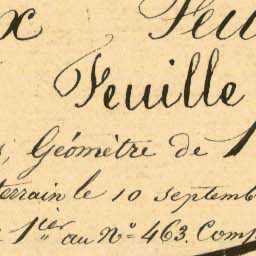 Feuille
Géomètre de 1
terrain le 10 septemb
1er au No 463. Comp